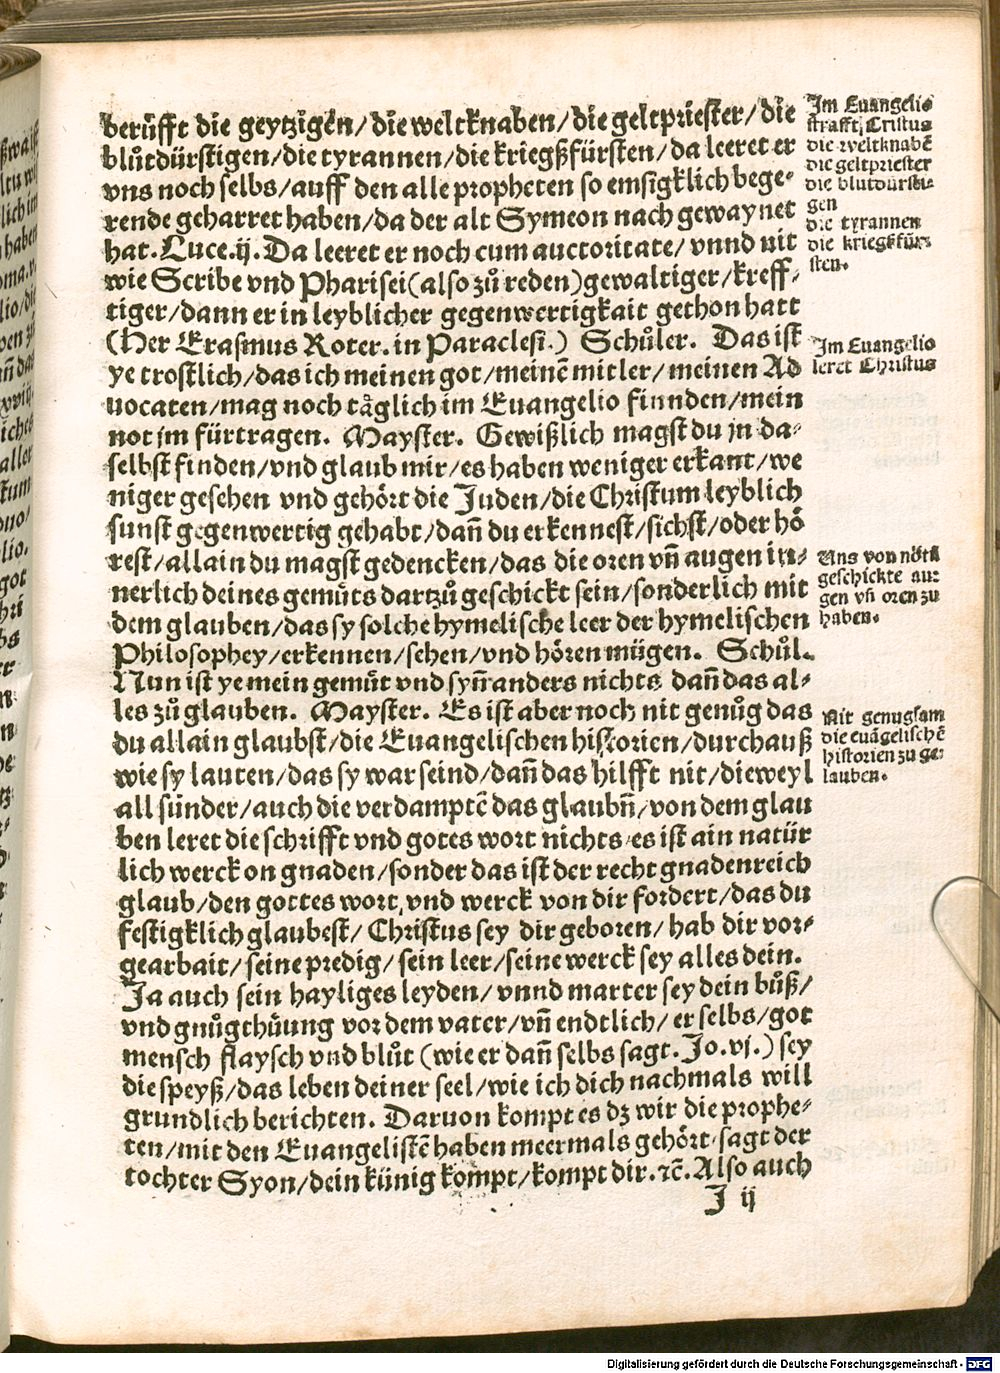 berüfft die geytzigen/die weltknaben/die geltpriester/die
blůtdürstigen/die tyrannen/die kriegßfürsten/da leeret er
vns noch selbs/auff den alle propheten so emsigklich bege-
rende geharret haben/da der alt Symeon nach gewaynet
hat. Luce.ij. Da leeret er noch cum auctoritate/vnnd nit
wie Scribe vnd Pharisei(also zů reden)gewaltiger/kreff-
tiger/dann er in leyblicher gegenwertigkait gethon hatt
(Her Erasmus Roter. in Paraclesi.) Schůler. Das ist
ye trostlich/das ich meinen got/meinē mitler/meinen Ad
uocaten/mag noch täglich im Euangelio finnden/mein
not jm fürtragen. Mayster. Gewißlich magst du jn da-
selbst finden/vnd glaub mir/es haben weniger erkant/we
niger gesehen vnd gehört die Juden/die Christum leyblich
sunst gegenwertig gehabt/dañ du erkennest/sichst/oder hö
rest/allain du magst gedencken/das die oren vñ augen in-
nerlich deines gemüts dartzů geschickt sein/sonderlich mit
dem glauben/das sy solche hymelische leer der hymelischen
Philosophey/erkennen/sehen/vnd hören mügen. Schůl.
Nun ist ye mein gemüt vnd syñ anders nichts dañ das al-
les zů glauben. Mayster. Es ist aber noch nit genůg das
du allain glaubst/die Euangelischen historien/durchauß
wie sy lauten/das sy war seind/dañ das hilfft nit/dieweyl
all sünder/auch die verdamptē das glaubñ/von dem glau
ben leret die schrifft vnd gotes wort nichts es ist ain natür
lich werck on gnaden/sonder das ist der recht gnadenreich
glaub/den gottes wort vnd werck von dir fordert/das du
festigklich glaubest/Christus sey dir geboren/hab dir vor-
gearbait/seine predig/sein leer/seine werck sey alles dein.
Ja auch sein hayliges leyden/vnnd marter sey dein bůß/
vnd gnůgthüung vor dem vater/vñ endtlich/er selbs/got
mensch flaysch vnd blůt (wie er dañ selbs sagt. Jo.vj.) sey
die speyß/das leben deiner seel/wie ich dich nachmals will
grundlich berichten. Daruon kompt es dz wir die prophe-
ten/mit den Euangelistē haben meermals gehört sagt der
tochter Syon/dein künig kompt/kompt dir.ꝛc̄. Also auch
J ij
Im Euangelio
strafft Cristus
die weltknabē
die geltpriester
die blutdursti-
gen
die tyrannen
die kriegßfür-
sten.
Im Euangelio
leret Christus
Uns von nötē
geschickte au-
gen vñ oren zu
haben.
Nit genugsam
die euāgelischē
historien zu ge-
lauben.
Digitalisierung gefördert durch die Deutsche Forschungsgemeinschaft - DFG